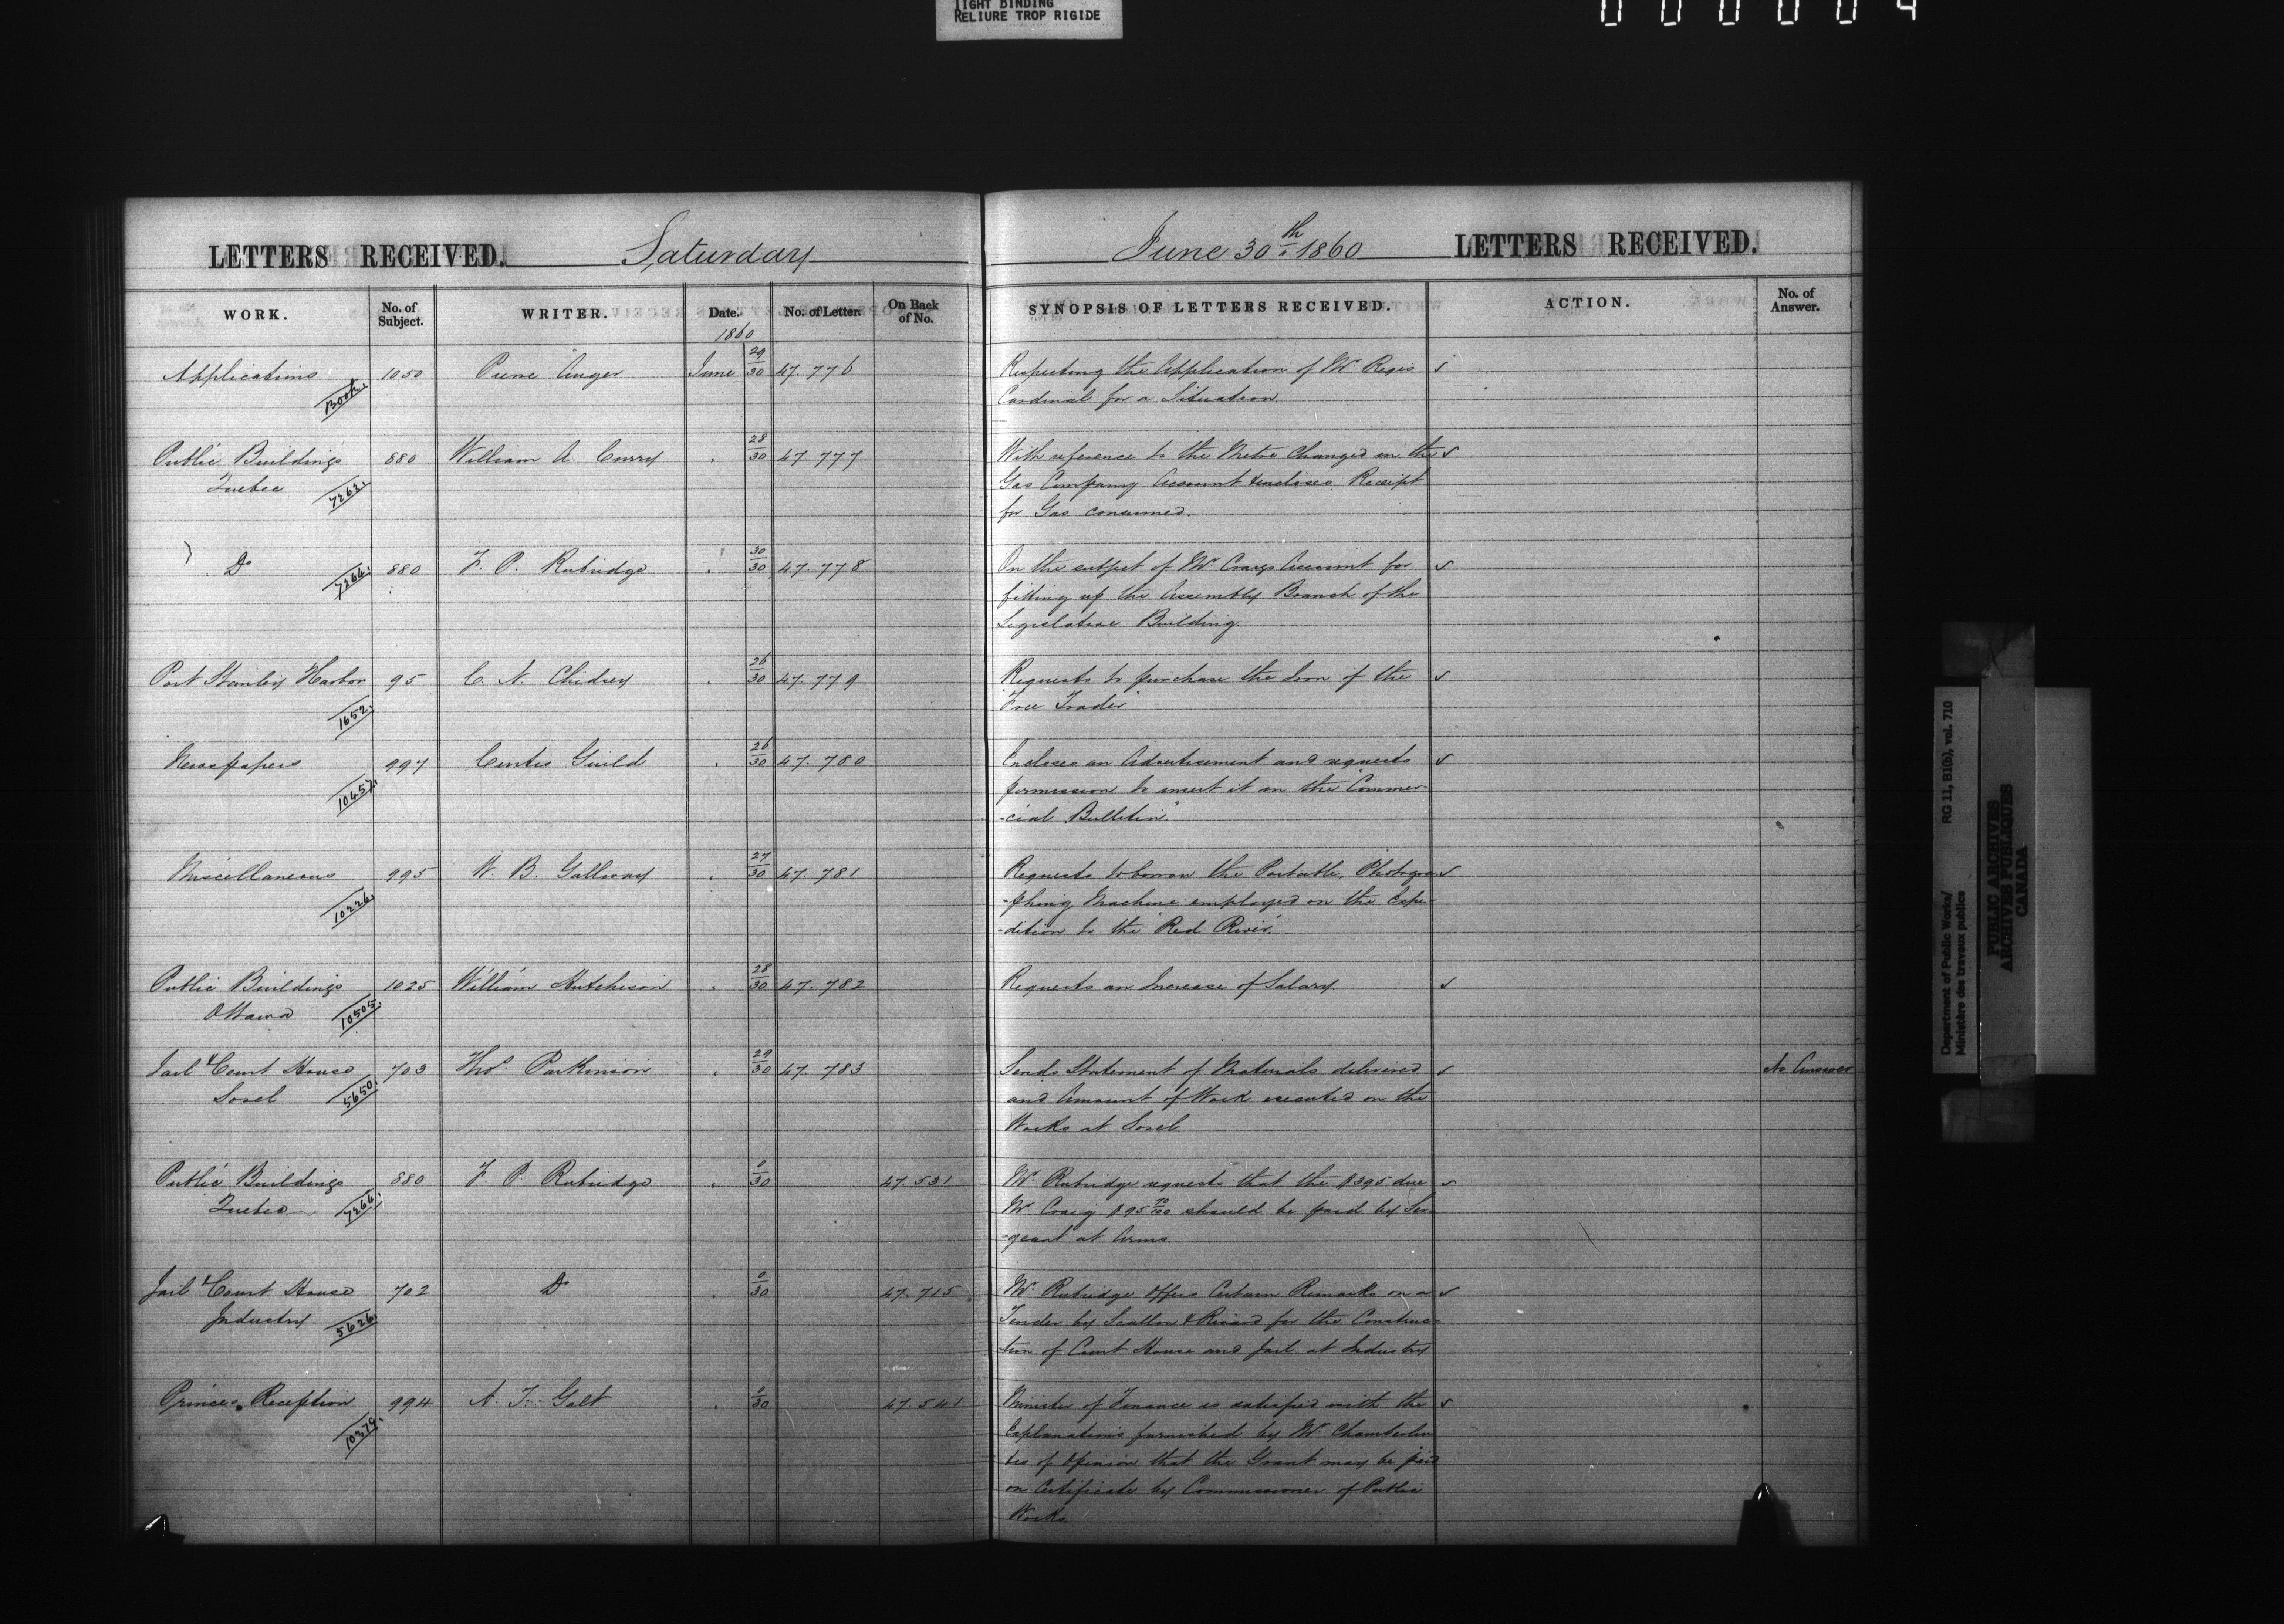 TIGHT BINDING
RELIURE TROP RIGIDE
LETTERS RECEIVED. Saturday
June 30th 1860 LETTERS RECEIVED.
WORK. No. of Subject. WRITER. Date. No. of Letter. On Back of No. SYNOPSIS OF LETTERS RECEIVED. ACTION. No. of Answer.
1860
Applications 1050 Anger June 29/30 47.776 Respecting the Application of Mr Regis
Book. Cardinal for a Situation.
Public Buildings 880 William A. Curry 28/30 47.777 With reference to the Metre Changed in the
Quebec 7262. Gas Company Account & encloses Receipt
for Gas consumed.
Do 880 F. P. Rubidge 30/30 47.778 On the subject of Mr Craigs Account for
fitting up the Assembly Branch of the
Legislative Building.
Port Stanley Harbor 95 C. N. Chidsey 26/30 47.779 Requests to purchase the Iron of the
1652. "Free Trader"
Newspapers 997 Curtis Guild 26/30 47.780 Encloses an Advertisement and requests
10457. permission to insert it in the "Commer-
-cial Bulletin."
Miscellaneous 995 W. B. Gallway 27/30 47.781 Requests to borrow the Portable Photogra
10226. -phing Machine employed on the Expe-
-dition to the Red River.
Public Buildings 1025 William Hutchison 28/30 47.782 Requests an Increase of Salary.
Ottawa 10505.
Jail & Court House 703 Thos. Parkinson 29/30 47.783 Sends Statement of Materials delivered No Answer
Sorel 5650. and Amount of Work executed on the
Works at Sorel
Public Buildings 880 F. P. Rubidge 0/30 47.531 Mr. Rubidge requests that the $395 due
Quebec 7264. Mr Craig $95 should be paid by Ser-
-geant at Arms
Jail & Court House 702 Do 0/30 47.715 Mr. Rubidge Offers Certain Remarks on a
Industry 5626. Tender by Scallon & Rivard for the Construc-
tion of Court House and Jail at Industry
Princes Reception 994 A. T. Galt 0/30 47.541 Minister of Finance is satisfied with the
10379. Explanations furnished by Mr Chamberlin
& is of Opinion that the Grant may be paid
on Certificate by Commissioner of Public
Works
Department of Public Works/ RG 11, B1(b), vol. 710
Ministère des travaux publics
PUBLIC ARCHIVES
ARCHIVES PUBLIQUES
CANADA